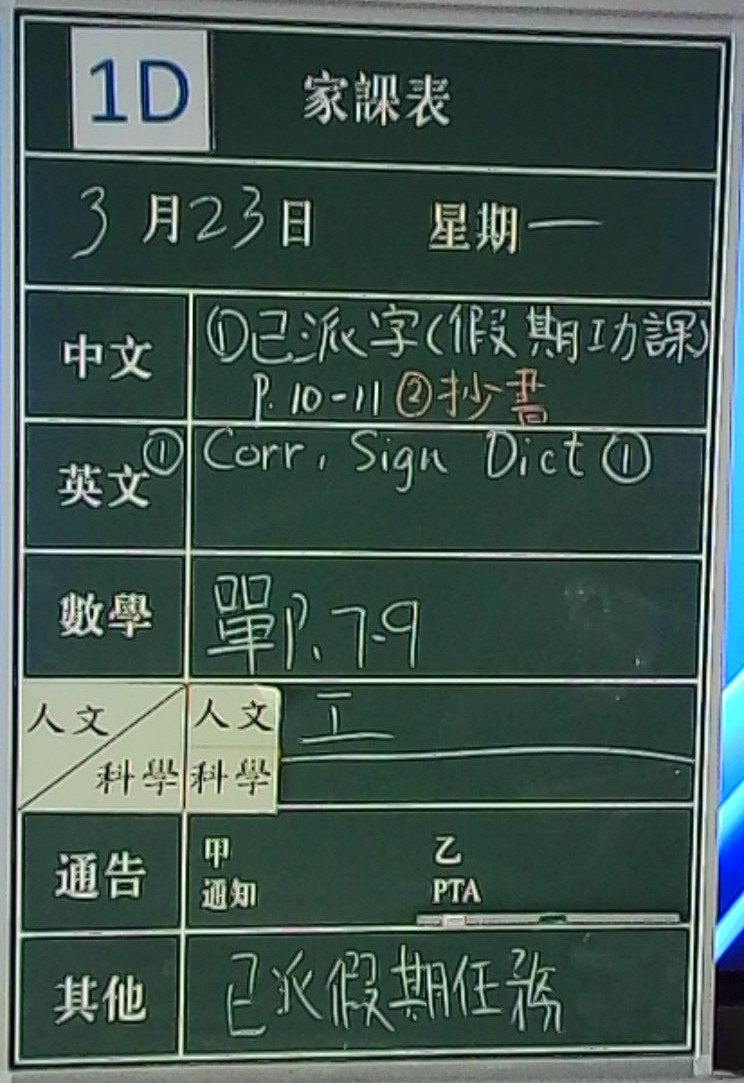 1D 家課表
3月23日 星期一
中文 ①已派字(假期功課)
P.10-11 ②抄書
英文 ① Corr, Sign Dict ①
數學 單P.7-9
人文 人文 工
科學 科學
通告 甲 乙
通知 PTA
其他 已派假期任務